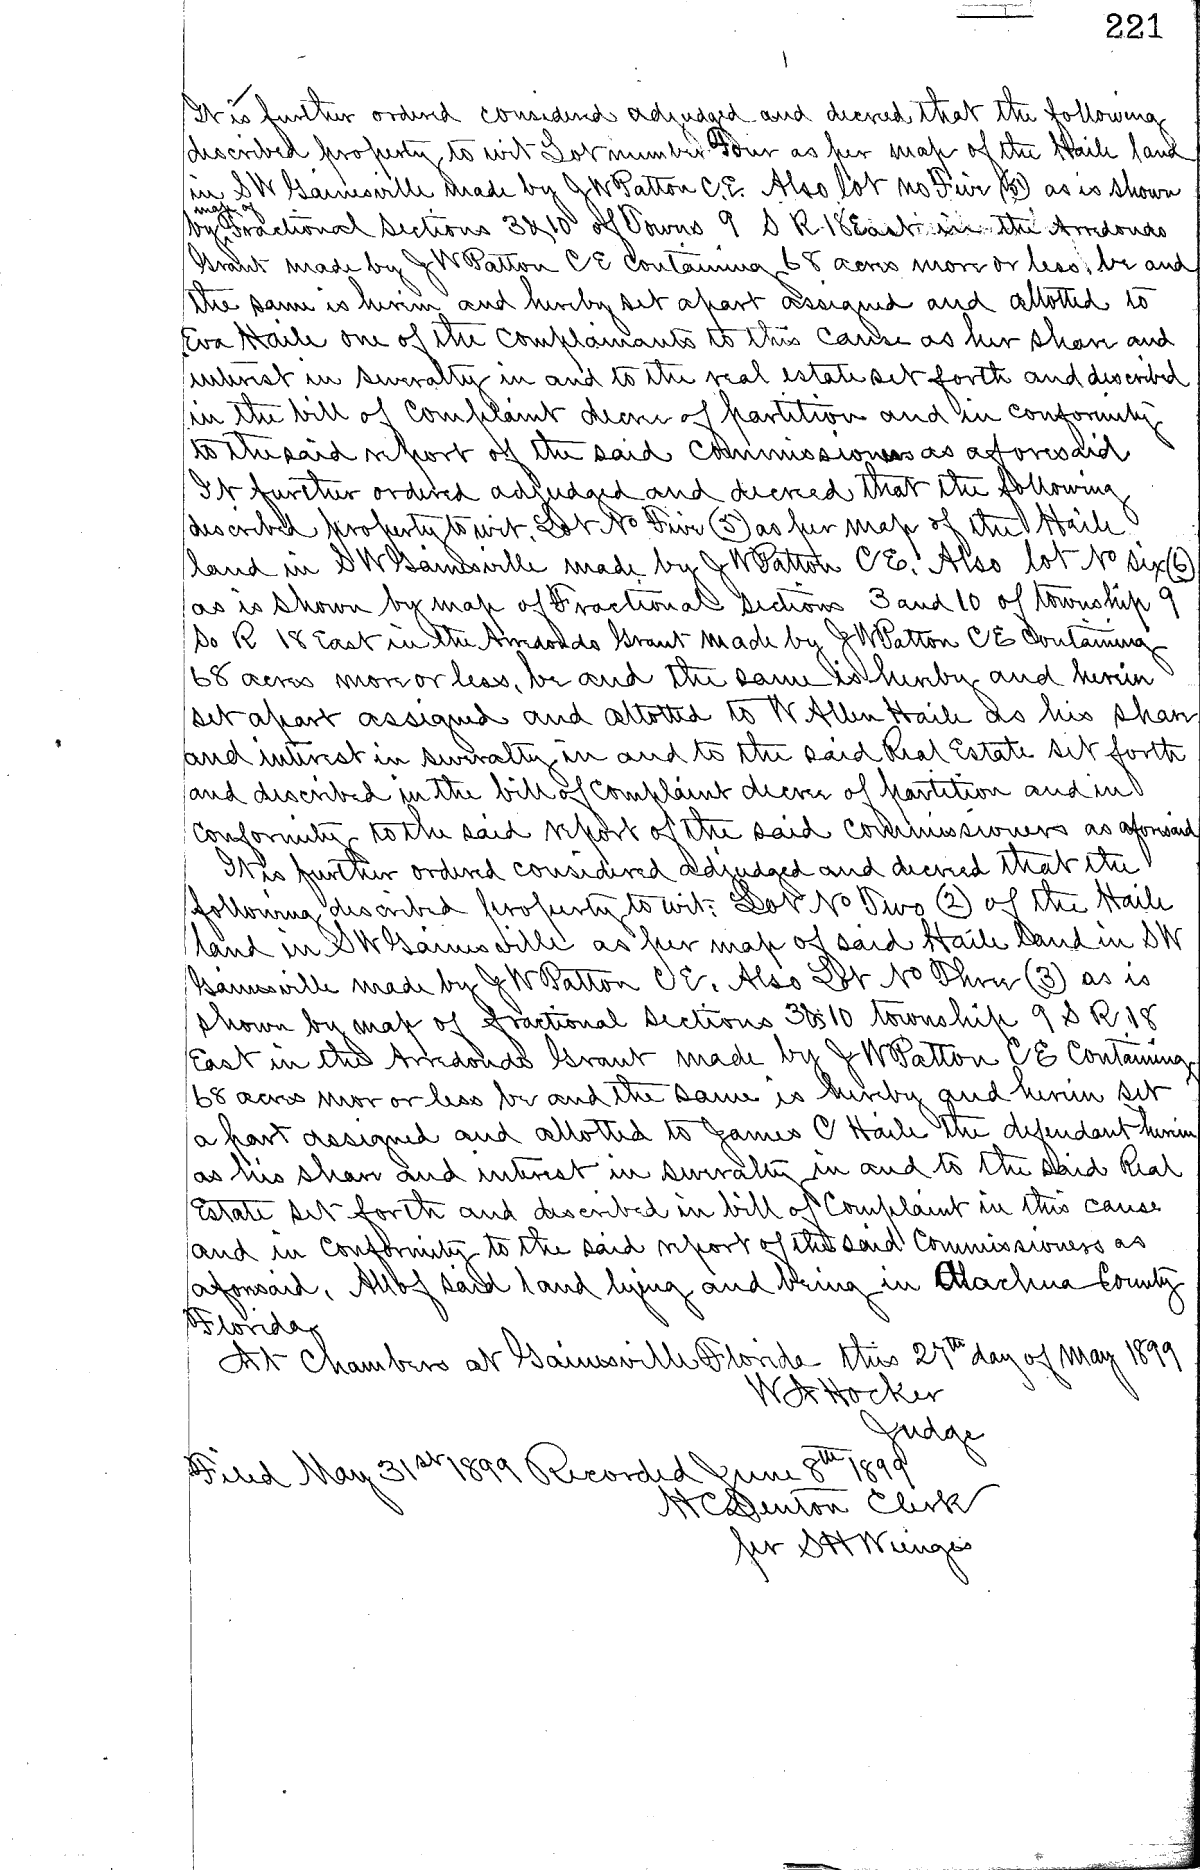 221
It is further ordered considered adjudged and decreed that the following
described property to wit Lot number Four as per map of the Haile land
in SW Gainesville made by J W Patton C.E. Also lot no Five (5) as is shown
map of
by Fractional Sections 3 & 10 of Towns 9 S R 18 East in the Arredondo
Grant made by J W Patton C E Containing 68 acres more or less, be and
the same is herein and hereby set apart assigned and allotted to
Eva Haile one of the Complainants to this Cause as her share and
interest in severalty in and to the real estate set forth and described
in the bill of Complaint decree of partition and in conformity
to the said report of the said Commissioners as aforesaid
It further ordered adjudged and decreed that the following
described property to wit. Lot No Five (5) as per map of the Haile
land in S W Gainesville made by J W Patton C E. Also lot No six (6)
as is shown by map of Fractional Sections 3 and 10 of township 9
So R 18 East in the Arredondo Grant made by J W Patton C E Containing
68 acres more or less, be and the same is hereby and herein
set apart assigned and allotted to W Allen Haile as his share
and interest in severalty in and to the said Real Estate set forth
and described in the bill of Complaint decree of partition and in
Conformity to the said report of the said Commissioners as aforesaid
It is further ordered considered adjudged and decreed that the
following described property to wit: Lot No Two (2) of the Haile
land in S W Gainesville as per map of said Haile Land in S W
Gainesville made by J W Patton C E. Also Lot No Three (3) as is
shown by map of fractional Sections 3 & 10 township 9 S R 18
East in the Arredondo Grant made by J W Patton C E Containing
68 acres mor or less be and the same is hereby and herein set
apart assigned and allotted to James C Haile the defendant herein
as his share and interest in severalty in and to the said Real
Estate set forth and described in bill of Complaint in this cause
and in Conformity to the said report of the said Commissioners as
aforesaid. All of said land lying and being in Alachua County
Florida
At Chambers at Gainesville Florida this 27th day of May 1899
W A Hocker
Judge
Filed May 31st 1899 Recorded June 8th 1899
H C Denton Clerk
per S H Wienges